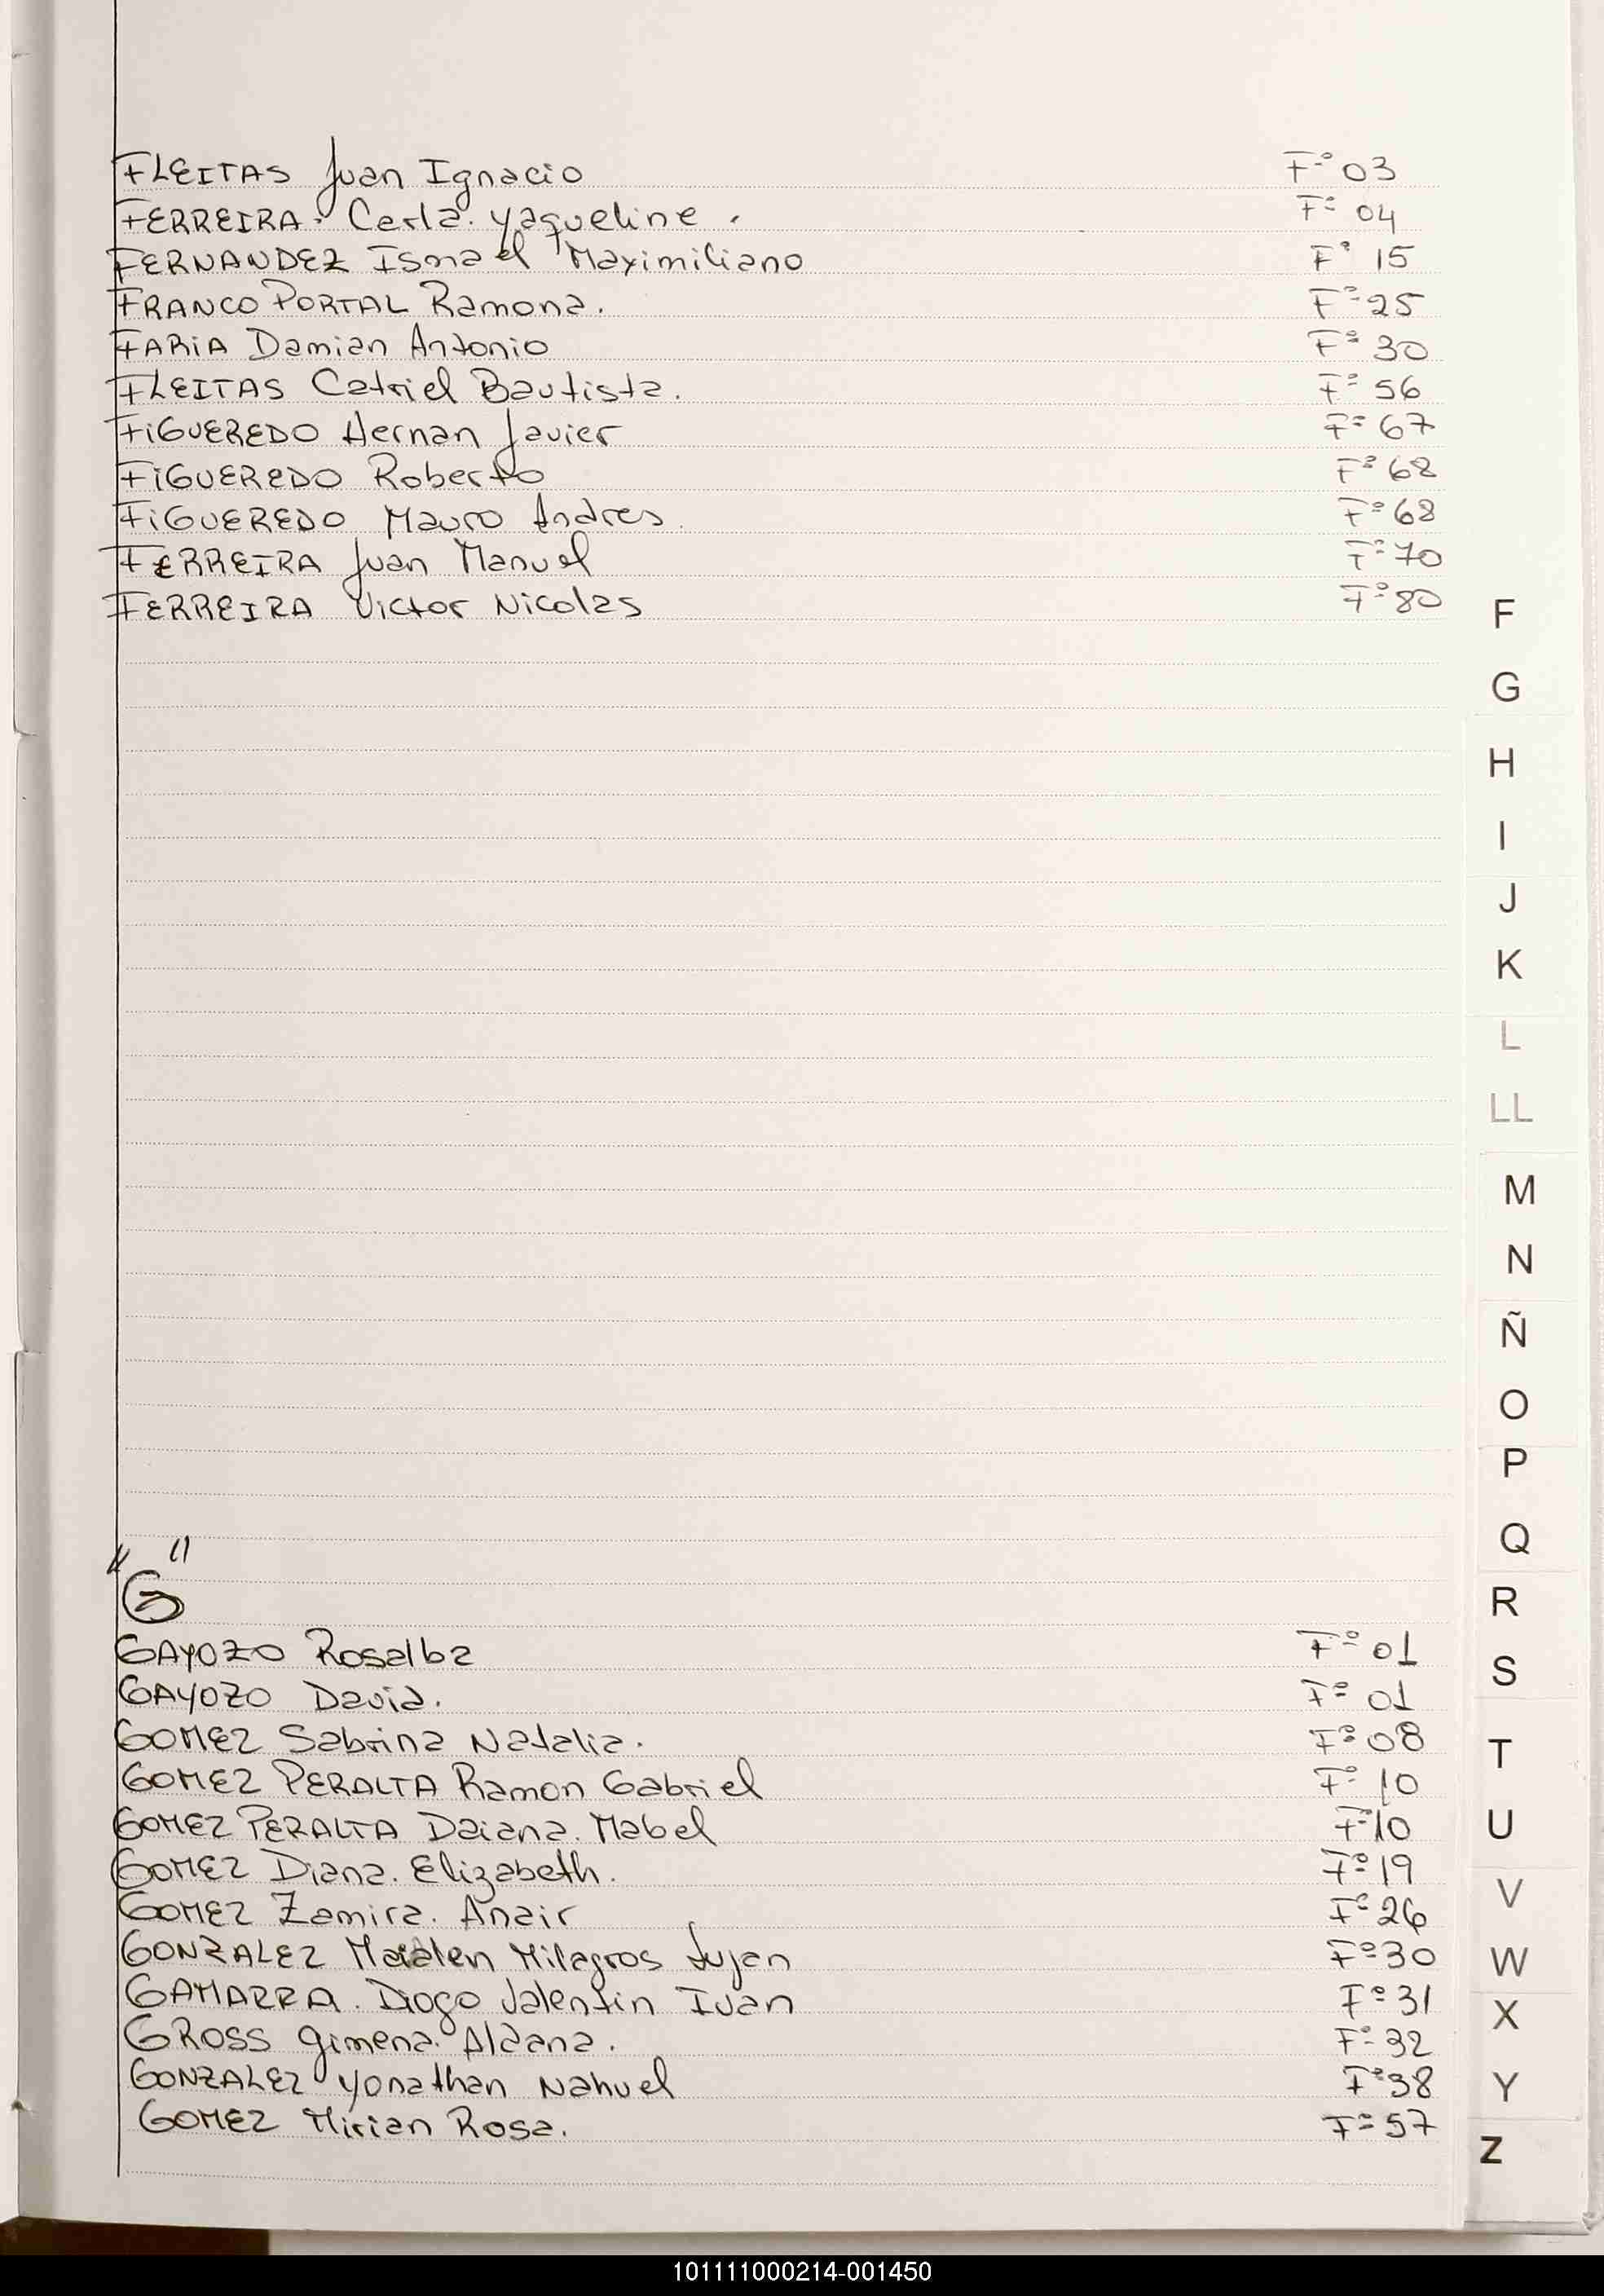 FLEITAS Juan Ignacio F=º 03
FERREIRA. Carla. Yaqueline. F=º 04
FERNANDEZ Ismael Maximiliano Fº 15
FRANCO PORTAL Ramona. Fº 25
FARIA Damian Antonio Fº 30
FLEITAS Catriel Bautista. Fº 56
FIGUEREDO Hernan Javier Fº 67
FIGUEREDO Roberto Fº 68
FIGUEREDO Mauro Andres. Fº 68
FERREIRA Juan Manuel Fº 70
FERREIRA Victor Nicolas Fº 80
F
G
H
I
J
K
L
LL
M
N
Ñ
O
P
Q
R
S
T
U
V
W
X
Y
Z
"G"
GAYOZO Rosalba Fº 01
GAYOZO David. Fº 01
GOMEZ Sabrina Natalia. Fº 08
GOMEZ PERALTA Ramon Gabriel Fº 10
GOMEZ PERALTA Daiana. Mabel Fº 10
GOMEZ Diana. Elizabeth. Fº 19
GOMEZ Zamira. Anair Fº 26
GONZALEZ Milagros Lujan Fº 30
GAMARRA. Diogo Valentin Ivan Fº 31
GROSS Gimena. Aldana. Fº 32
GONZALEZ Yonathan Nahuel Fº 38
GOMEZ Mirian Rosa. Fº 57
101111000214-001450